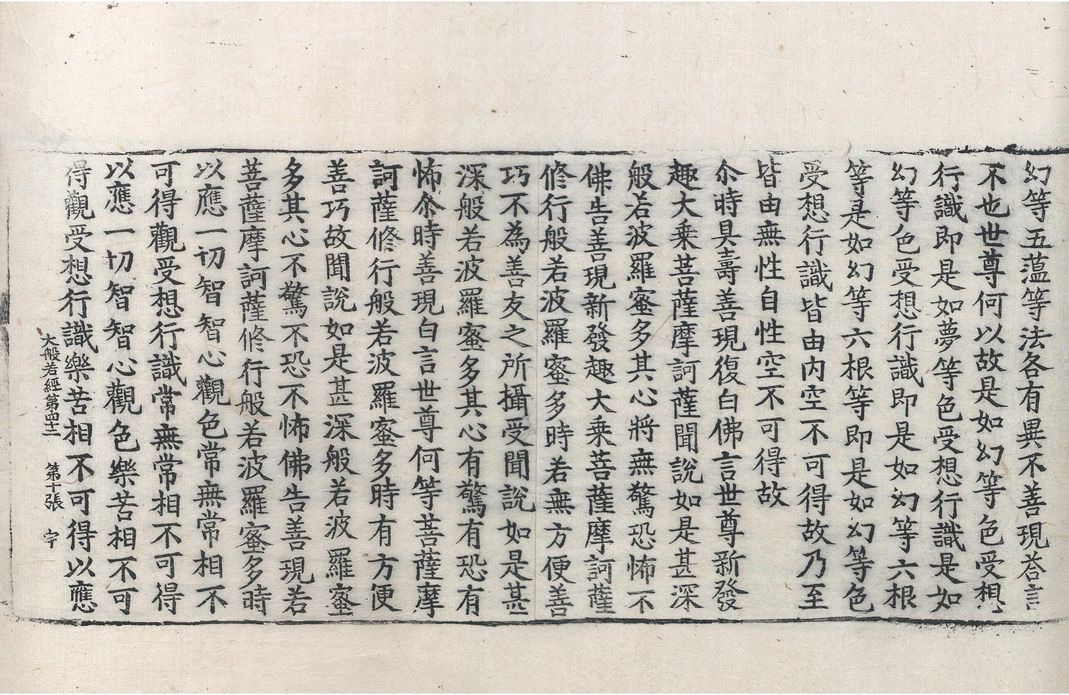 幻等五蘊等法各有異不善現荅言
不也世尊何以故是如幻等色受想
行識即是如夢等色受想行識是如
幻等色受想行識即是如幻等六根
等是如幻等六根等即是如幻等色
受想行識皆由内空不可得故乃至
皆由無性自性空不可得故
尒時具壽善現復白佛言世尊新發
趣大乗菩薩摩訶薩聞說如是甚深
般若波羅蜜多其心將無驚恐怖不
佛告善現新發趣大乗菩薩摩訶薩
修行般若波羅蜜多時若無方便善
巧不為善友之所攝受聞說如是甚
深般若波羅蜜多其心有驚有恐有
怖尒時善現白言世尊何等菩薩摩
訶薩修行般若波羅蜜多時有方便
善巧故聞說如是甚深般若波羅蜜
多其心不驚不恐不怖佛告善現若
菩薩摩訶薩修行般若波羅蜜多時
以應一切智智心觀色常無常相不
可得觀受想行識常無常相不可得
以應一切智智心觀色樂苦相不可
得觀受想行識樂苦相不可得以應
大般若經第四十二 第十張 宇